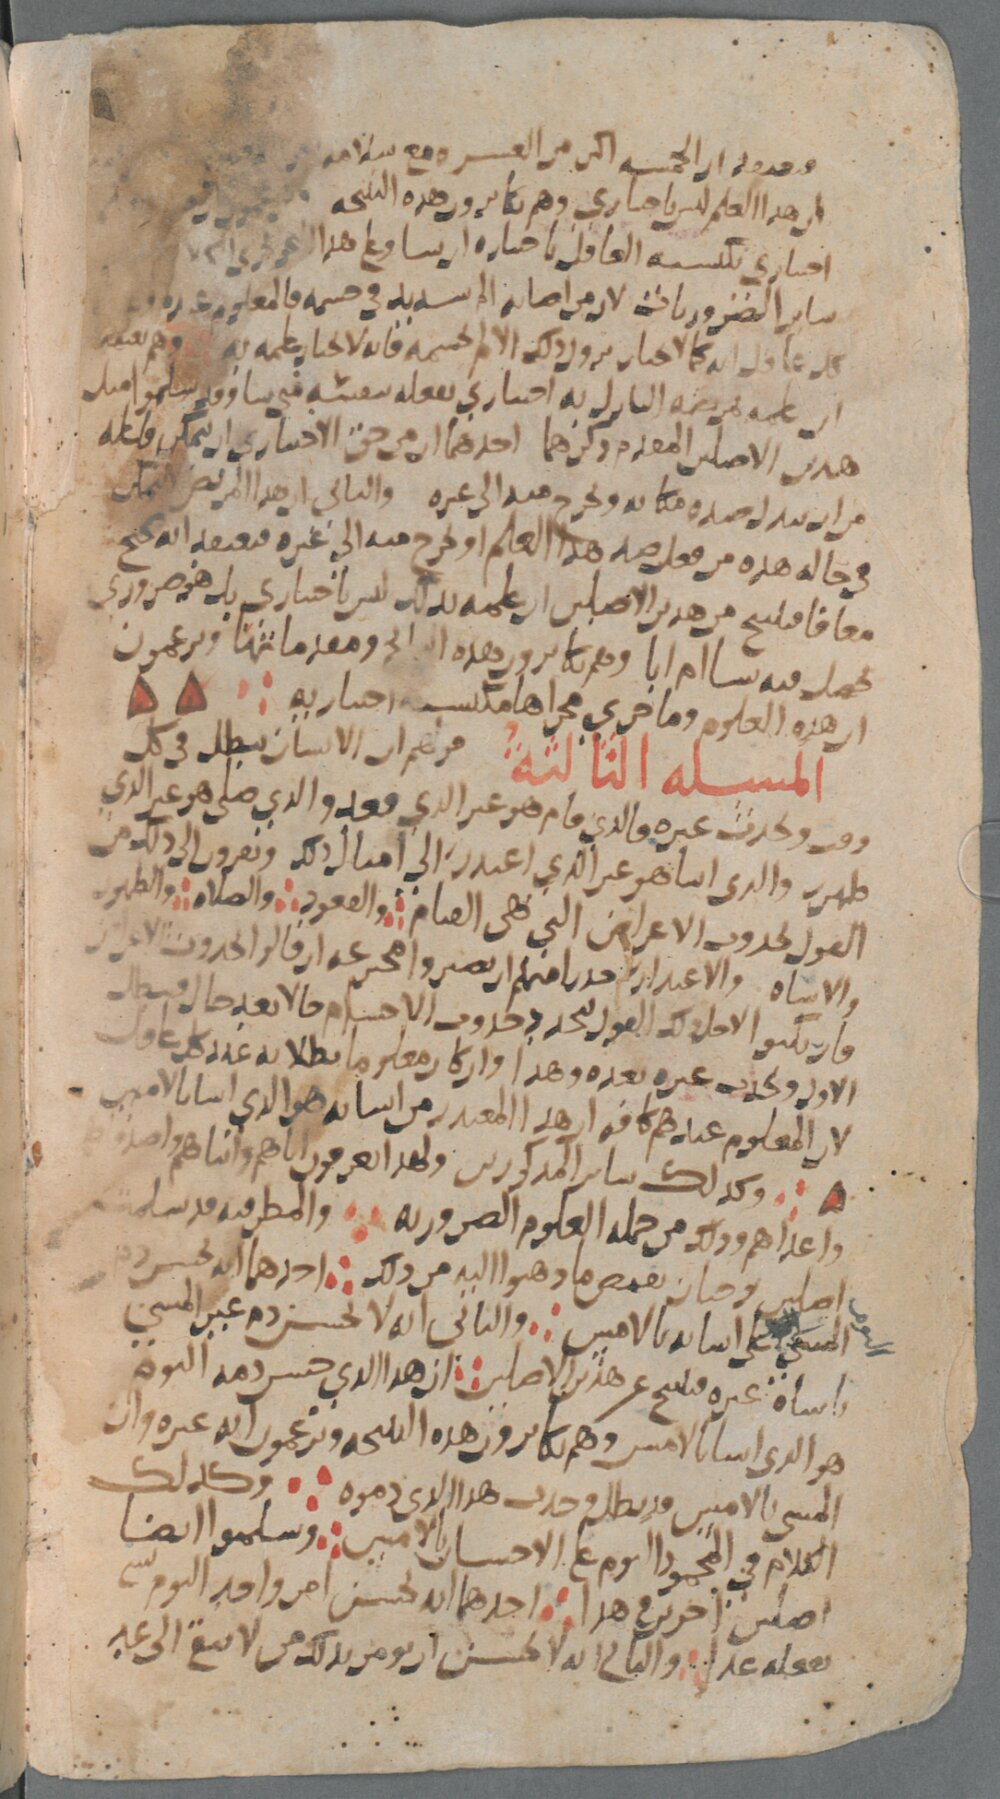 فيعتقد ان الخمسه اكثر من العشره مع سلامه
ان هذا العلم ليس باختياري وهم يكابرون هذه النتيجه
اختياري يكتسبه العاقل باختياره ان يشا وعلى هذا
ساير الضروريات لان من اصابه الم شديد في جسمه فالمعلوم عنده
كل عاقل انه كما لا يختار نزول ذلك الالم بجسمه فانه لا يختار علمه به وهم
ان علمه بمرضه النازل به اختياري يفعله بنفسه متى شا وقد سلموا
هذين الاصلين المقدم ذكرهما احدهما ان من حق الاختياري ان يتمكن فاعله
من ان يبدل ضده مكانه ويخرج منه الى غيره والثاني ان هذا المريض لا يتمكن
في حاله هذه من فعل ضد هذا العلم او يخرج منه الى غيره فيعتقد انه صحيح
معافا فينتج من هذين الاصلين ان علمه بذلك ليس باختياري بل هو ضروري
يحصل فيه شا ام ابا وهم يكابرون هذه ومقدماتها ويزعمون
ان هذه العلوم وما جرى مجراها مكتسبه اختياريه
المسله الثالثة قولهم ان الانسان يبطل في كل
وقت ويحدث غيره فالذي قام هو غير الذي قعد والذي صلى هو غير الذي
طهر والذي اسا هو غير الذي اعتذر الى امثال ذلك ويفرون الى ذلك من
القول بحدوث الاعراض التي هي القيام والقعود والصلاه والطهور
والاساه والاعتذار حذرا منهم ان يصيروا محبرة ان قالوا بحدوث الاعراض
فارتكبوا لاجل ذلك القول بتجدد حدوث الاجسام حالا بعد حال فيبطل
الاول ويحدث غيره بعده وهذا وان كان معلوما بطلانه عند كل عاقل
لان المعلوم عندهم كافه ان هذا المعتذر من اساته هو الذي اسا بالامس
وكذلك ساير المذكورين ولهذا يعرفون اباهم وابناهم
واعداهم وذلك من جمله العلوم الضروريه والمطرفيه قد سلمت
اصلين يوجبان نقيض ما ذهبوا اليه من ذلك احدهما انه يحسن ذم
المسي على اساته بالامس والثاني انه لا يحسن ذم غير المسي
باساة غيره فينتج عن هذين الاصلين ان هذا الذي حسن ذمه اليوم
هو الذي اسا بالامس وهم يكابرون هذه النتيجه ويزعمون انه غيره وان
المسي بالامس قد بطل وحدث هذا الذي ذموه وكذلك
الكلام في المحمود اليوم على الاحسان بالامس وسلموا ايضا
اصلين اخرين في هذا احدهما انه يحسن امر واحد اليوم بشي
يفعله غدا والثاني انه لا يحسن ان يومر بذلك من لا يبقى الى غد